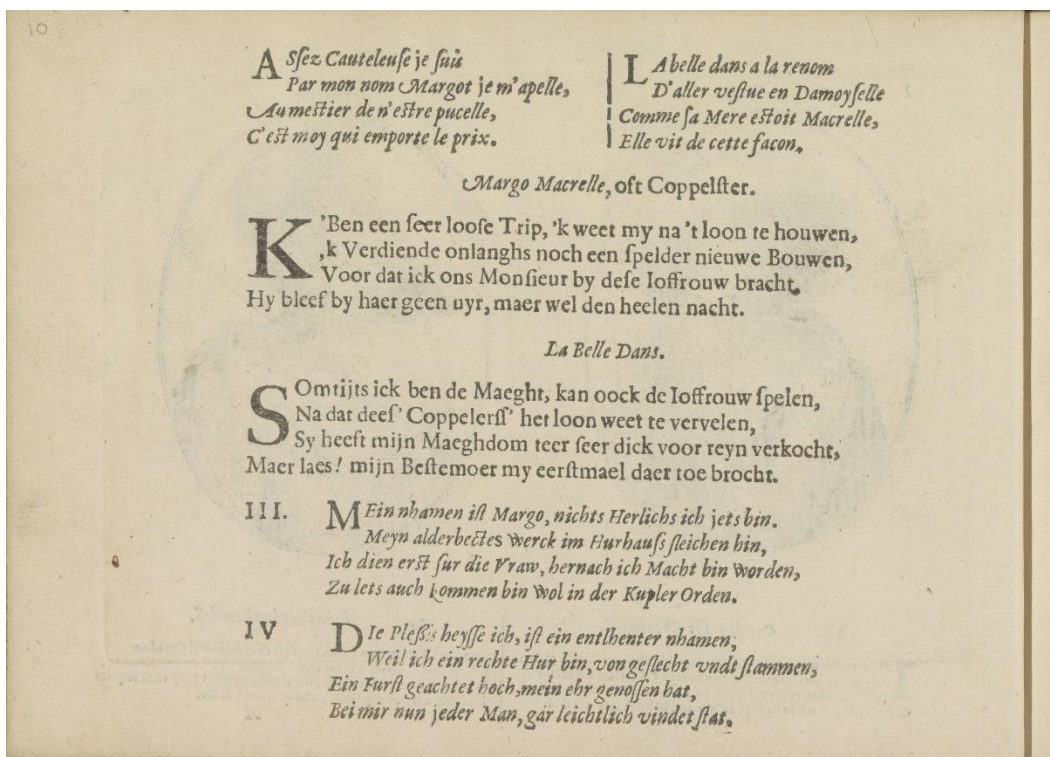 10
ASsez Cauteleuse je suis
Par mon nom Margot je m'apelle,
Au mestier de n'estre pucelle,
C'est moy qui emporte le prix.
LA belle dans a la renom
D'aller vestue en Damoyselle
Comme sa Mere estoit Macrelle,
Elle vit de cette facon.
Margo Macrelle, oft Coppelster.
K'Ben een seer loose Trip, 'k weet my na 't loon te houwen,
,k Verdiende onlanghs noch een spelder nieuwe Bouwen,
Voor dat ick ons Monsieur by dese Ioffrouw bracht,
Hy bleef by haer geen uyr, maer wel den heelen nacht.
La Belle Dans.
SOmtijts ick ben de Maeght, kan oock de Ioffrouw spelen,
Na dat dees' Coppelerss' het loon weet te vervelen,
Sy heeft mijn Maeghdom teer seer dick voor reyn verkocht,
Maer laes! mijn Bestemoer my eerstmael daer toe brocht.
III. MEin nhamen ist Margo, nichts Herlichs ich jets bin.
Meyn alderbectes werck im Hurhauss sleichen hin,
Ich dien erst fur die Vraw, hernach ich Macht bin worden,
Zu lets auch kommen bin wol in der Kupler Orden.
IV DIe Plessis heysse ich, ist ein entlhenter nhamen,
Weil ich ein rechte Hur bin, von geslecht vndt stammen,
Ein Furst geachtet hoch, mein ehr genossen hat,
Bei mir nun jeder Man, gar leichtlich vindet stat.